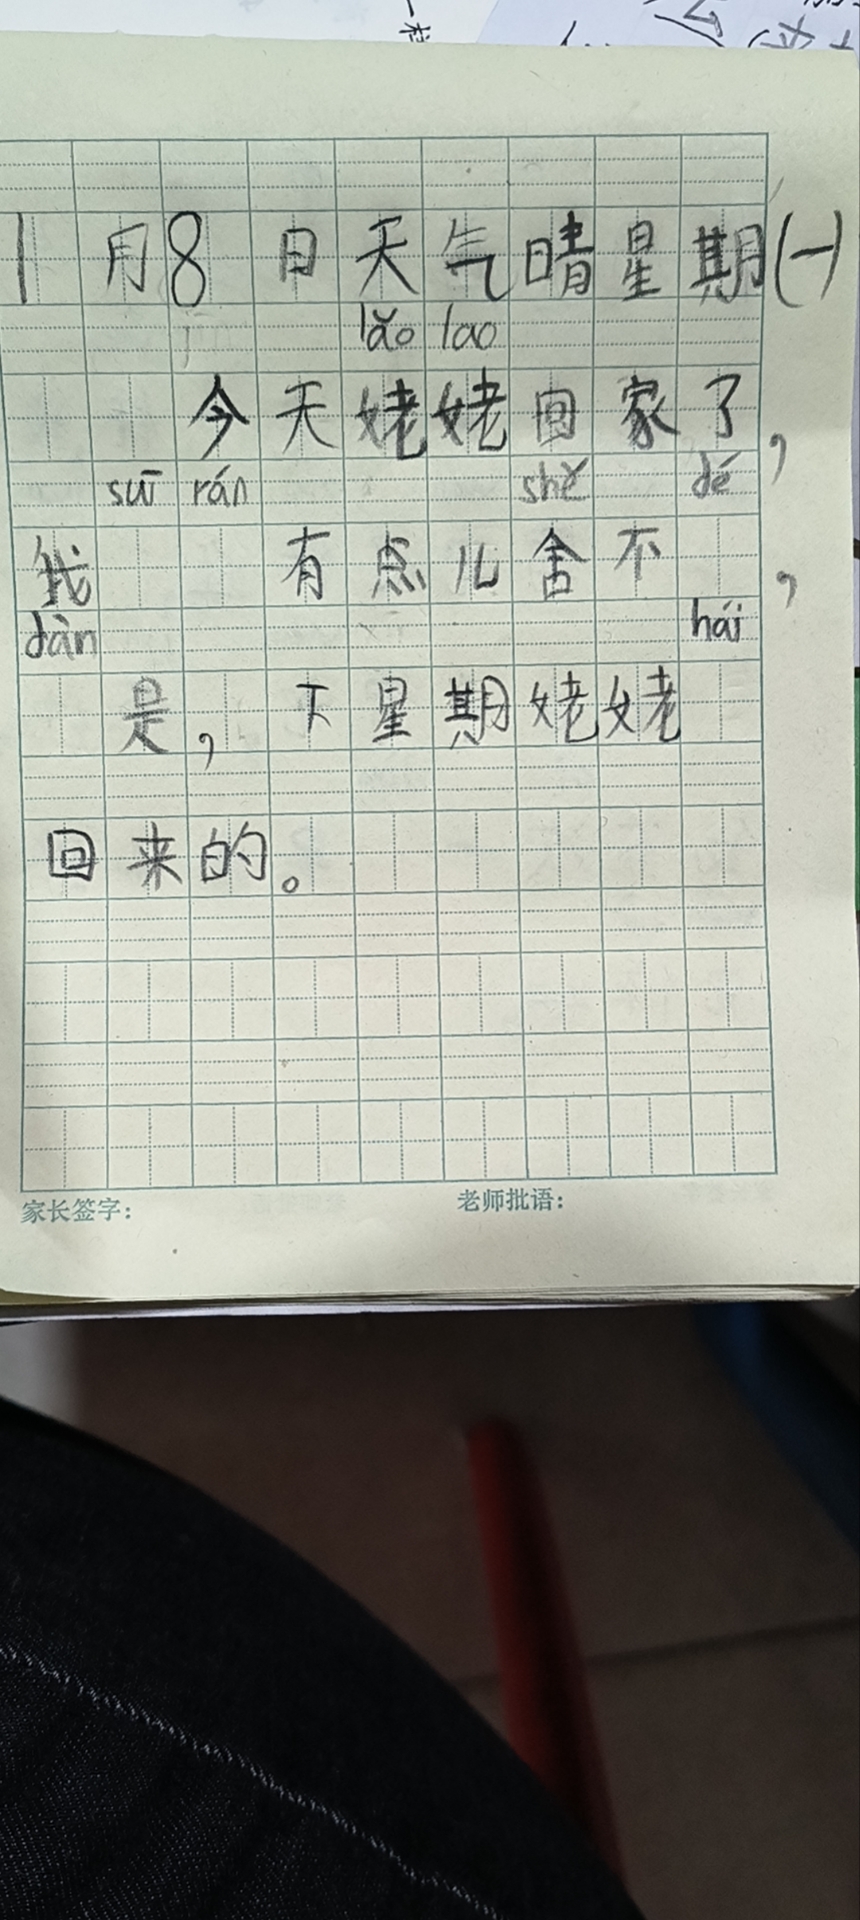 1月8日天气晴星期(一)
lǎo lao
今天姥姥回家了，
suī rán shě dé
我 有点儿舍不 ，
dàn hái
是，下星期姥姥
回来的。
家长签字： 老师批语：